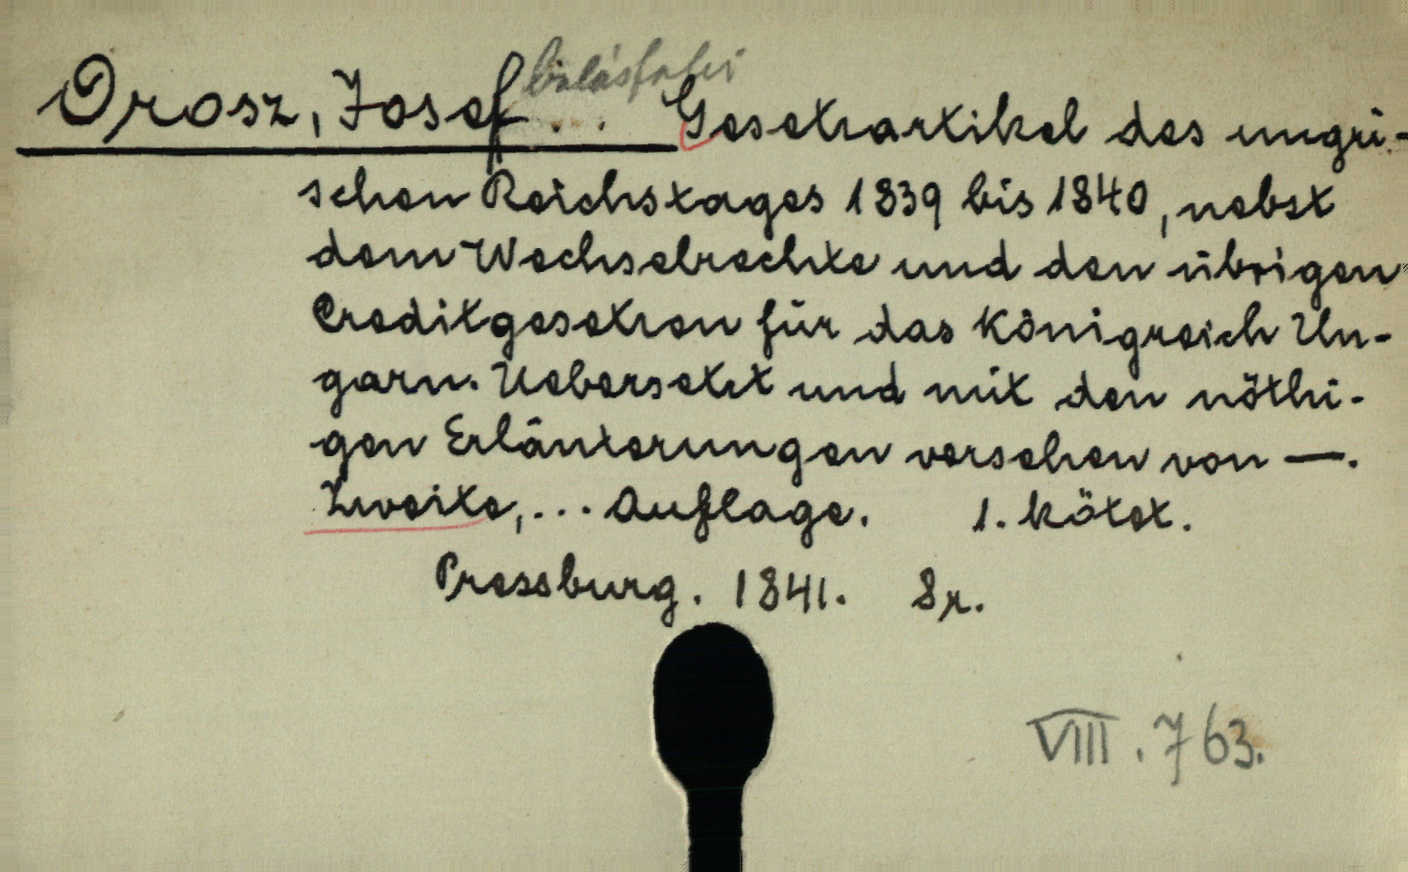 Orosz, Josef balásfalvi ... Gesetzartikel des ungri-
schen Reichstages 1839 bis 1840, nebst
dem Wechselrechte und den übrigen
Creditgesetzen für das Königreich Un-
garn. Uebersetzt und mit den nöthi-
gen Erläuterungen versehen von —.
Zweite, ... Auflage. 1. kötet.
Pressburg. 1841. 8r.
VIII. 763.